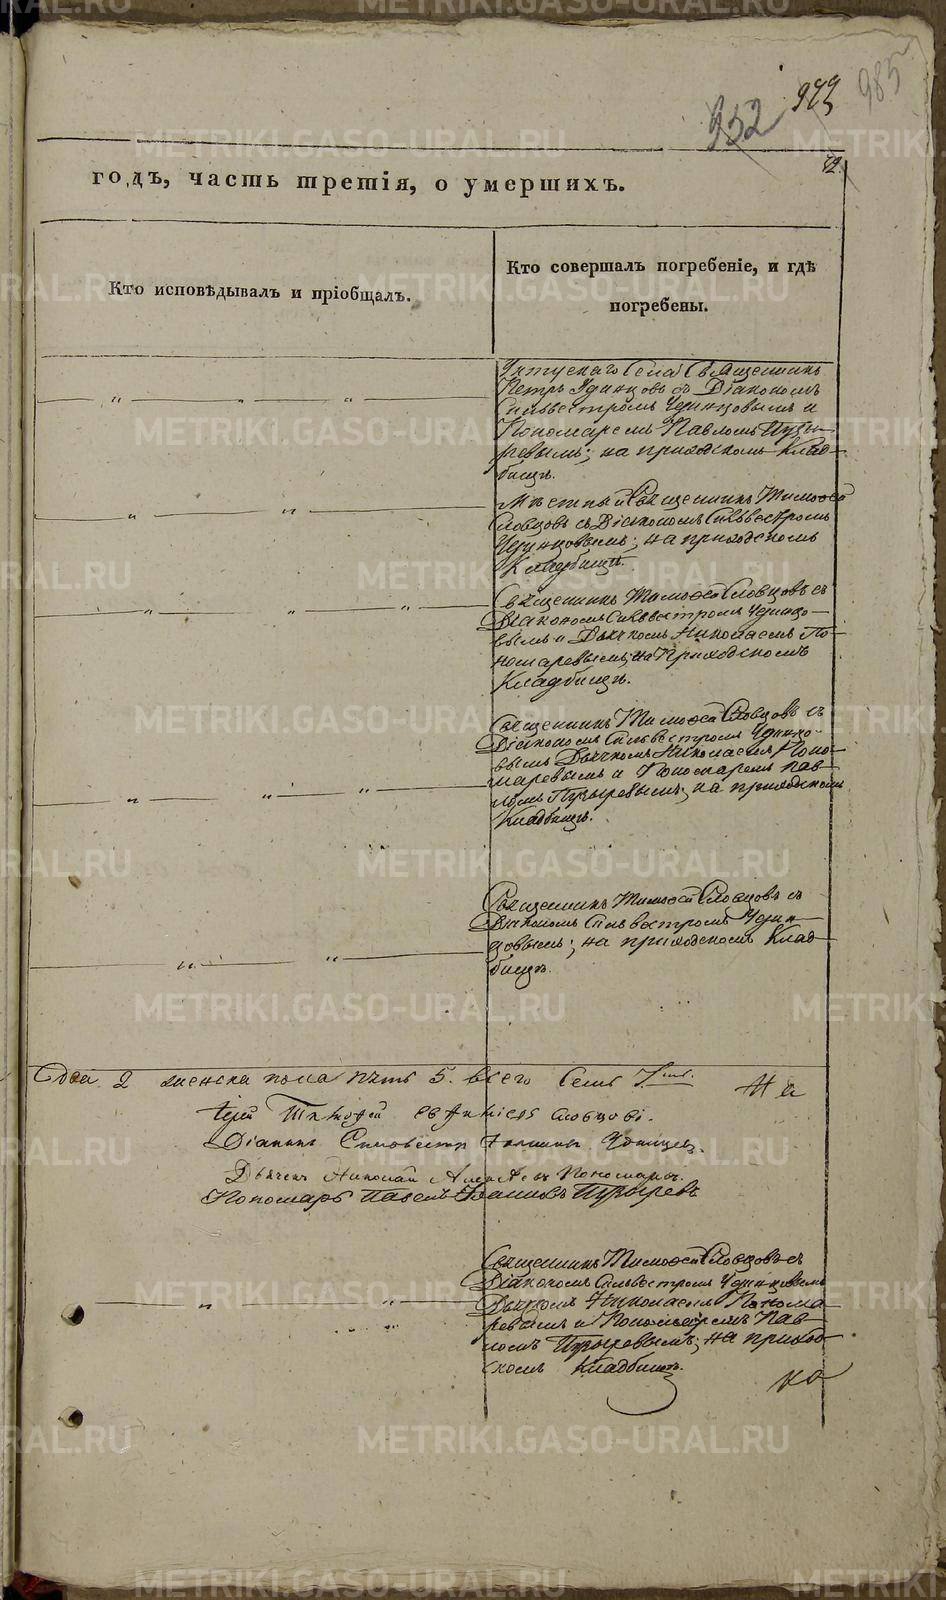 932 943 985
42.
годъ, часть третія, о умершихъ.
Кто исповѣдывалъ и пріобщалъ.
Кто совершалъ погребеніе, и гдѣ
погребены.
Уктускаго Села Священникъ
Петръ Удинцовъ съ Діакономъ
Сильвестромъ Удинцовымъ и
Пономаремъ Павломъ Пузы-
ревымъ; на приходскомъ Клад-
бищѣ.
Мѣстный Священникъ Тимоѳей
Словцовъ съ Діакономъ Сильвестромъ
Удинцовымъ; на приходскомъ
Кладбищѣ.
Священникъ Тимоѳей Словцовъ съ
Діакономъ Сильвестромъ Удинцо-
вымъ и Дьячкомъ Николаемъ По-
номаревымъ; на Приходскомъ
Кладбищѣ.
Священникъ Тимоѳей Словцовъ съ
Діакономъ Сильвестромъ Удинцо-
вымъ Дьячкомъ Николаемъ Поно-
маревымъ и Пономаремъ Пав-
ломъ Пузыревымъ; на приходскомъ
Кладбищѣ.
Священникъ Тимоѳей Словцовъ съ
Діакономъ Сильвестромъ Удин-
цовымъ; на приходскомъ Клад-
бищѣ.
два 2 женска пола пять 5. всего Семь 7
Іерей Тимоѳей Словцовъ.
Діаконъ Силвестръ Удинцев.
Дьячекъ Николай Пономарев.
Пономарь Павелъ Іоанновъ Пузыревъ
Священникъ Тимоѳей Словцовъ съ
Діакономъ Сильвестромъ Удинцовымъ
Дьячкомъ Николаемъ Понома-
ревымъ и Пономаремъ Пав-
ломъ Пузыревымъ; на приход-
скомъ Кладбищѣ.
METRIKI.GASO-URAL.RU